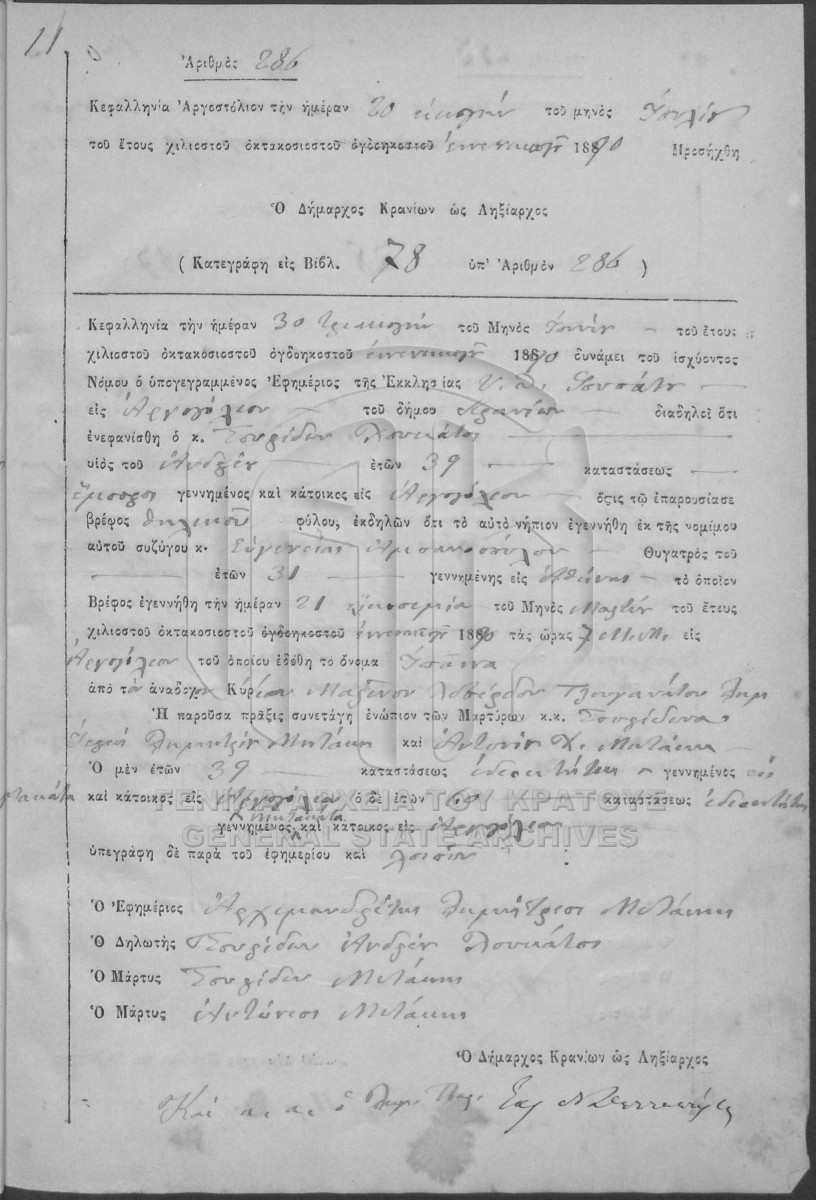 11
Ἀριθμὸς 286
Κεφαλληνία Ἀργοστόλιον τὴν ἡμέραν 20 εἰκοστήν τοῦ μηνὸς Ἰουλίου
τοῦ ἔτους χιλιοστοῦ ὀκτακοσιοστοῦ ὀγδοηκοστοῦ ἐννενηκοστοῦ 1890 Προσήχθη
Ὁ Δήμαρχος Κρανίων ὡς Ληξίαρχος
(Κατεγράφη εἰς Βιβλ. 78 ὑπ' Ἀριθμὸν 286)
Κεφαλληνία τὴν ἡμέραν 30 τριακοστήν τοῦ Μηνὸς Ἰουνίου τοῦ ἔτους
χιλιοστοῦ ὀκτακοσιοστοῦ ὀγδοηκοστοῦ ἐννενηκοστοῦ 1890 δυνάμει τοῦ ἰσχύοντος
Νόμου ὁ ὑπογεγραμμένος Ἐφημέριος τῆς Ἐκκλησίας
εἰς Ἀργοστόλιον τοῦ δήμου Κρανίων διαδηλοῖ ὅτι
ἐνεφανίσθη ὁ κ. Σπυρίδων Λουκάτος
υἱὸς τοῦ Ἀνδρέου ἐτῶν 39 καταστάσεως
ἔμπορος γεννημένος καὶ κάτοικος εἰς Ἀργοστόλιον ὅςτις τῷ ἐπαρουσίασε
βρέφος θηλυκοῦ φύλου, ἐκδηλῶν ὅτι τὸ αὐτὸ νήπιον ἐγεννήθη ἐκ τῆς νομίμου
αὐτοῦ συζύγου κ. Εὐγενείας Θυγατρὸς τοῦ
ἐτῶν 31 γεννημένης εἰς Ἀθήνας τὸ ὁποῖον
Βρέφος ἐγεννήθη τὴν ἡμέραν 21 τοῦ Μηνὸς Μαρτίου τοῦ ἔτους
χιλιοστοῦ ὀκτακοσιοστοῦ ὀγδοηκοστοῦ ἐννενηκοστοῦ 1890 τὰς ὥρας 7 εἰς
Ἀργοστόλιον τοῦ ὁποίου ἐδόθη τὸ ὄνομα
ἀπὸ τὸν ἀνάδοχον Κύριον
Ἡ παροῦσα πρᾶξις συνετάγη ἐνώπιον τῶν Μαρτύρων κ.κ. Σπυρίδωνα
Μητάκη καὶ Ἀντωνίου Χ. Μητάκη
Ὁ μὲν ἐτῶν 39 καταστάσεως γεννημένος εἰς
καὶ κάτοικος εἰς Ἀργοστόλιον ὁ δὲ ἐτῶν καταστάσεως
γεννημένος καὶ κάτοικος εἰς Ἀργοστόλιον
ὑπεγράφη δὲ παρὰ τοῦ ἐφημερίου καὶ λοιπῶν
ΓΕΝΙΚΑ ΑΡΧΕΙΑ ΤΟΥ ΚΡΑΤΟΥΣ
GENERAL STATE ARCHIVES
Ὁ Ἐφημέριος Ἀρχιμανδρίτης Δημήτριος Μητάκης
Ὁ Δηλωτὴς Σπυρίδων Ἀνδρέου Λουκάτος
Ὁ Μάρτυς Σπυρίδων Μητάκης
Ὁ Μάρτυς Ἀντώνιος Μητάκης
Ὁ Δήμαρχος Κρανίων ὡς Ληξίαρχος